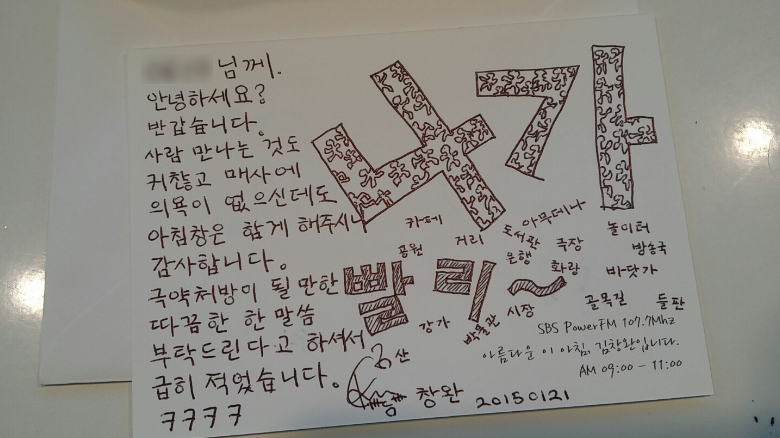 님께.
안녕하세요?
반갑습니다.
사람 만나는 것도
귀찮고 매사에
의욕이 없으신데도
아침창은 함께 해주시니
감사합니다.
극약처방이 될 만한
따끔한 한 말씀
부탁드린다고 하셔서
급히 적었습니다.
ㅋㅋㅋㅋ
나가
카페 아무데나 놀이터
공원 거리 도서관 극장 방송국
은행 화랑 바닷가
빨리~
강가 박물관 시장 골목길 들판
산
SBS PowerFM 107.7Mhz
아름다운 이 아침, 김창완입니다.
AM 09:00 - 11:00
창완 20150121